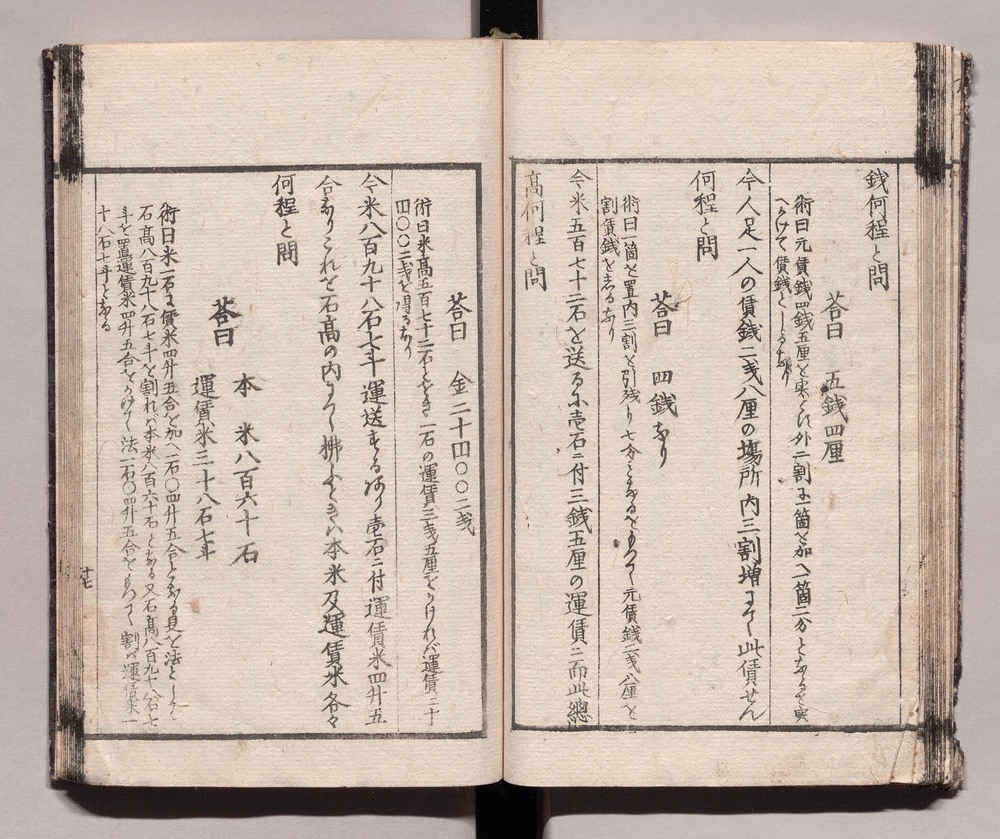 銭何程と問
答曰　五銭四厘
術曰元賃銭四銭五厘を実とし外二割に一箇を加へ一箇二分となるを実
へかけて賃銭としるなり
今人足一人の賃銭二銭八厘の場所内三割増にて此賃せん
何程と問
答曰　四銭なり
術曰一箇を置内三割を引残り七分となるをもつて元賃銭二銭八厘を
割賃銭を志るなり
今米五百七十二石を送るに壱石ニ付三銭五厘の運賃ニ而此總
高何程と問
答曰　金二十四〇〇二銭
術曰米高五百七十二石をおき一石の運賃三銭五厘をかければ運賃二十
四〇〇二銭を得るなり
今米八百九十八石七斗運送するあり壱石ニ付運賃米四升五
合なりこれを石高の内にて拂ふときハ本米及運賃米各々
何程と問
答曰　本　米八百六十石
運賃米三十八石七斗
術曰米一石に賃米四升五合を加へ一石〇四升五合となる是を法として
石高八百九十八石七斗を割れば本米八百六十石となる又石高八百九十八石七
斗を置運賃米四升五合をかけて法一石〇四升五合をもつて割バ運賃米三
十八石七斗となる
十七